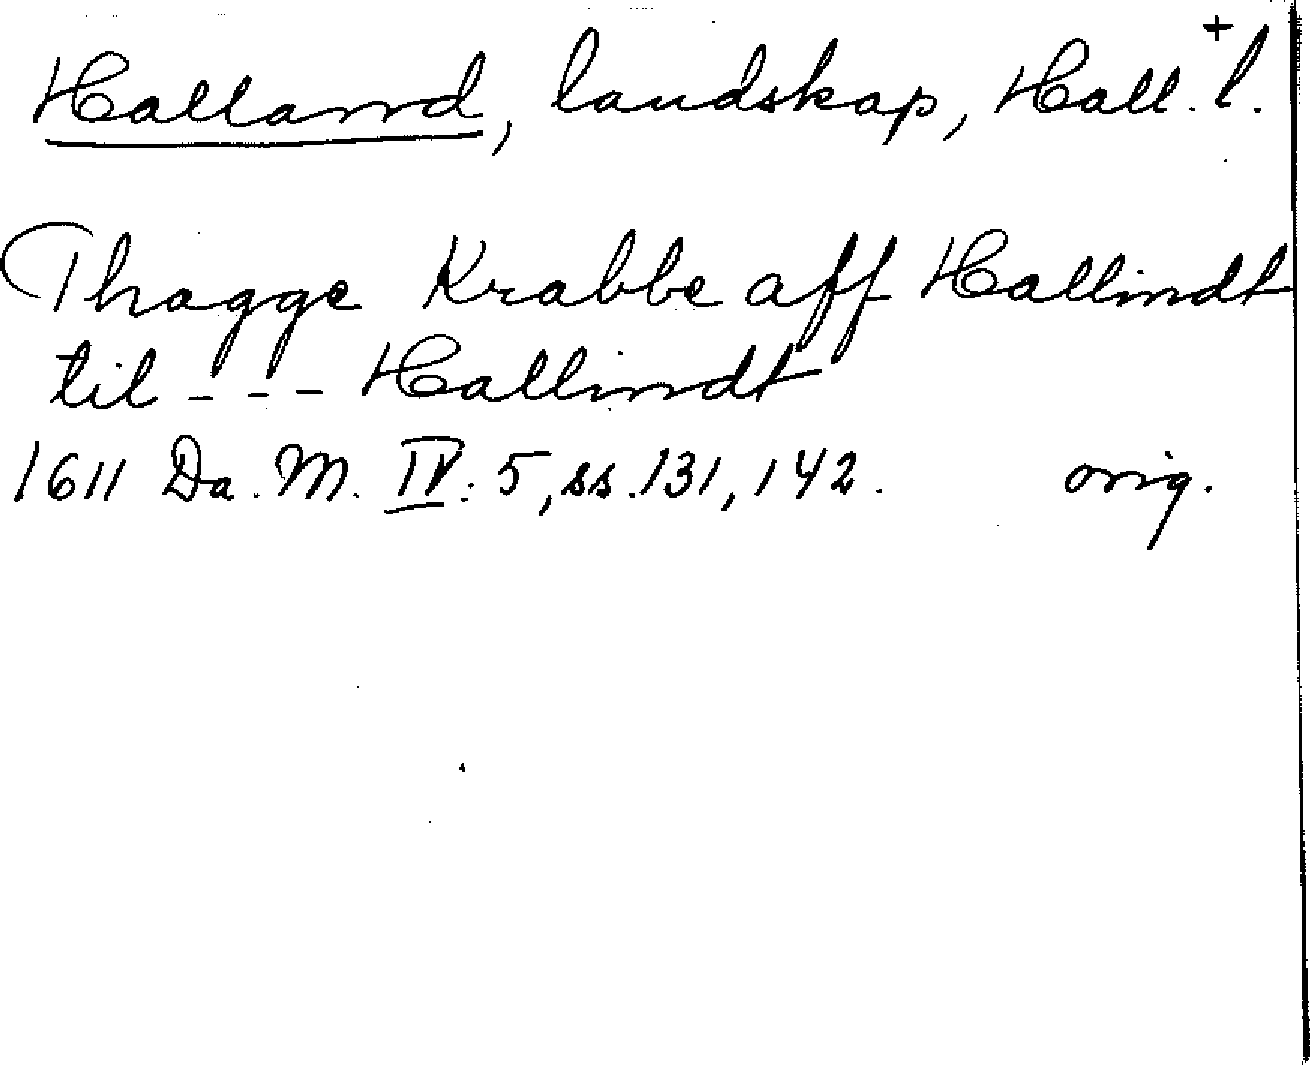 Halland, landskap, Hall. l. +
Thagge Krabbe aff Hallindt
til - - - Hallindt
1611 Da. M. IV: 5, ss. 131, 142. orig.